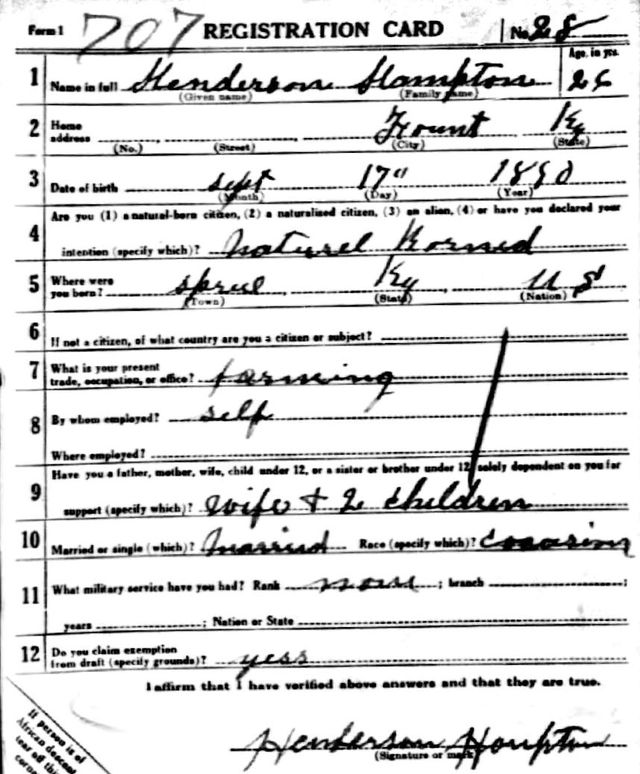 Form 1 707 REGISTRATION CARD No. 28
Age, in yrs.
1 Name in full Henderson Hampton 26
(Given name) (Family name)
2 Home address Fount Ky
(No.) (Street) (City) (State)
3 Date of birth sept 17" 1890
(Month) (Day) (Year)
Are you (1) a natural-born citizen, (2) a naturalized citizen, (3) an alien, (4) or have you declared your
4 intention (specify which)? Naturel Borned
5 Where were you born? Ky U S
(Town) (State) (Nation)
6 If not a citizen, of what country are you a citizen or subject?
7 What is your present trade, occupation, or office? farming
8 By whom employed? self
Where employed?
Have you a father, mother, wife, child under 12, or a sister or brother under 12, solely dependent on you for
9 support (specify which)? wife + 2 children
10 Married or single (which)? Married Race (specify which)?
11 What military service have you had? Rank ; branch ;
years ; Nation or State
12 Do you claim exemption from draft (specify grounds)? yess
I affirm that I have verified above answers and that they are true.
Henderson Hampton
(Signature or mark)
If person is of
African descent
tear off this
corner